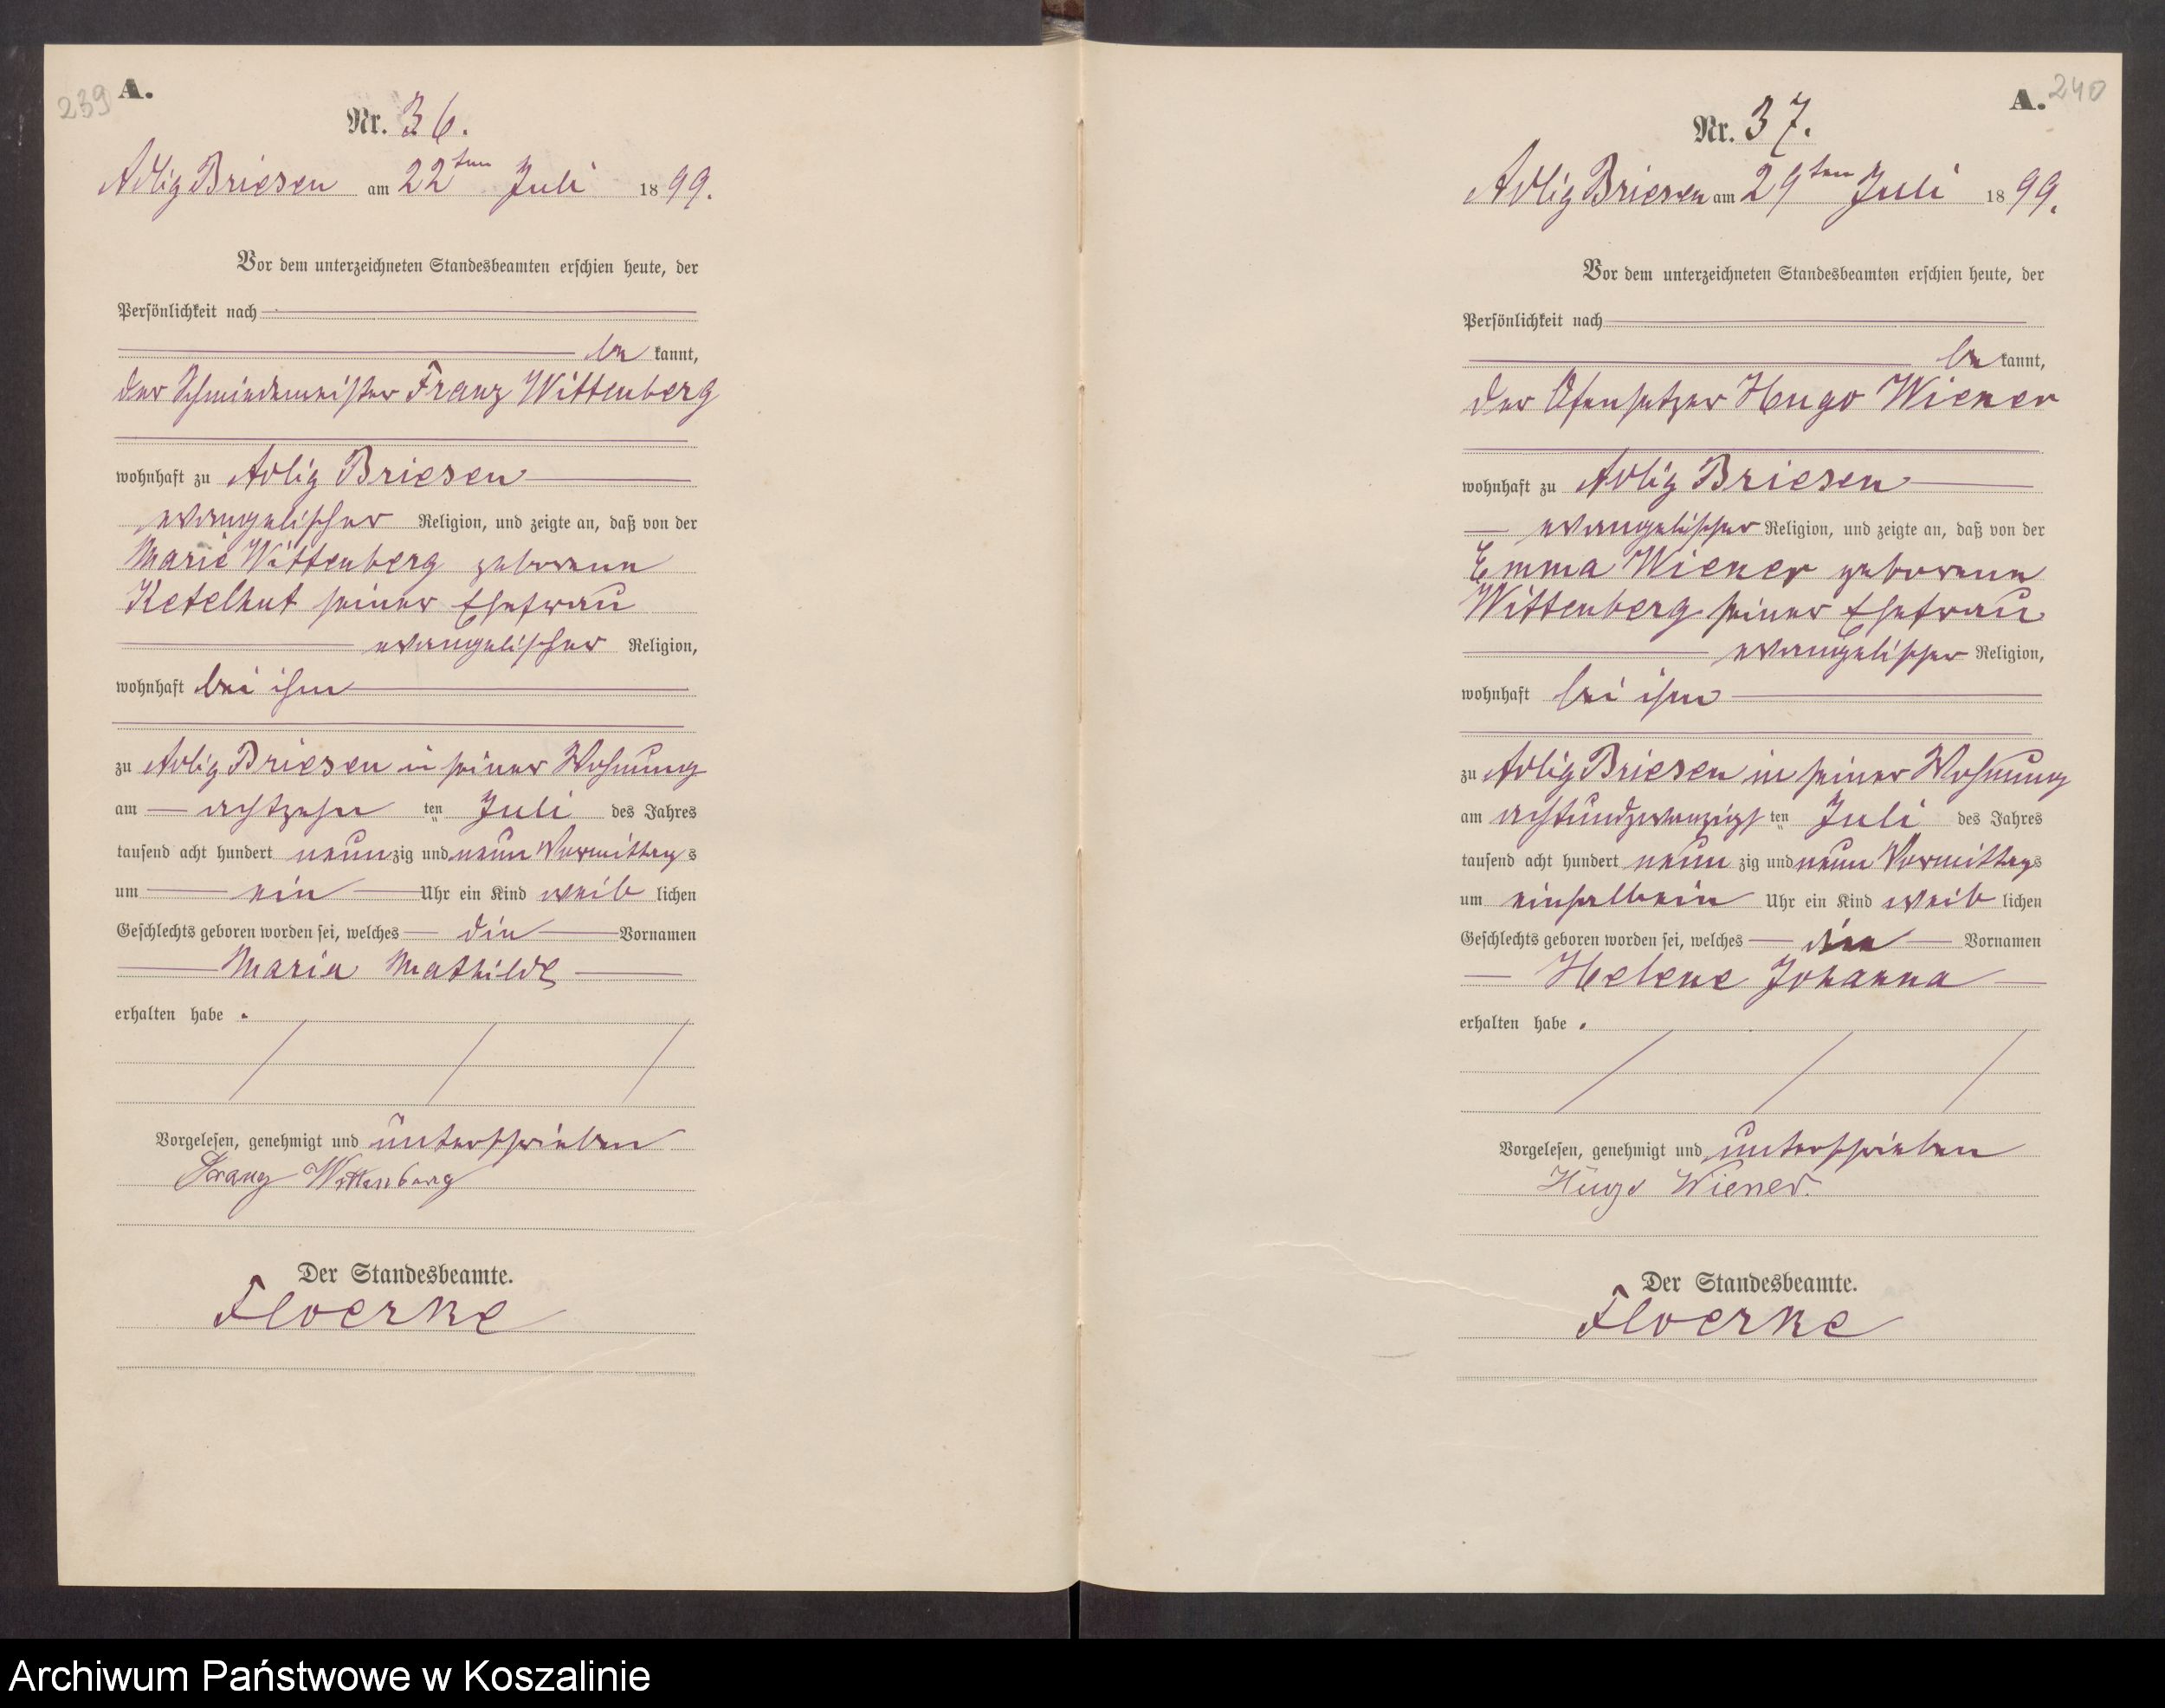 239
A.
Nr. 36.
Adlig Briesen am 22ten Juli 1899.
Vor dem unterzeichneten Standesbeamten erschien heute, der
Persönlichkeit nach
be kannt,
der Schmiedemeister Franz Wittenberg
wohnhaft zu Adlig Briesen
evangelischer Religion, und zeigte an, daß von der
Marie Wittenberg geborenen
Ketelhut seiner Ehefrau
evangelischer Religion,
wohnhaft bei ihm
zu Adlig Briesen in seiner Wohnung
am achtzehn ten Juli des Jahres
tausend acht hundert neunzig und neun Vormittags
um ein Uhr ein Kind weib lichen
Geschlechts geboren worden sei, welches die Vornamen
Maria Mathilde
erhalten habe .
Vorgelesen, genehmigt und unterschrieben
Franz Wittenberg
Der Standesbeamte.
Floerke
A. 240
Nr. 37.
Adlig Briesen am 29ten Juli 1899.
Vor dem unterzeichneten Standesbeamten erschien heute, der
Persönlichkeit nach
be kannt,
der Ofensetzer Hugo Wiener
wohnhaft zu Adlig Briesen
evangelischer Religion, und zeigte an, daß von der
Emma Wiener geborene
Wittenberg seiner Ehefrau
evangelischer Religion,
wohnhaft bei ihm
zu Adlig Briesen in seiner Wohnung
am achtundzwanzigs ten Juli des Jahres
tausend acht hundert neun zig und neun Vormittags
um einhalbein Uhr ein Kind weib lichen
Geschlechts geboren worden sei, welches die Vornamen
Helene Johanna
erhalten habe .
Vorgelesen, genehmigt und unterschrieben
Hugo Wiener.
Der Standesbeamte.
Floerke
Archiwum Państwowe w Koszalinie